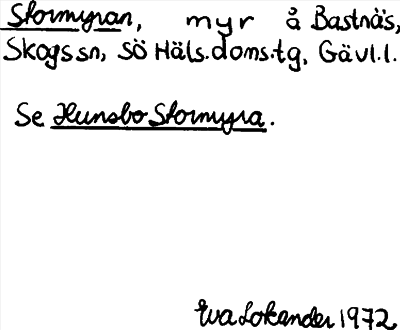 Stormyran, myr å Bastnäs,
Skogs sn, SÖ Häls.doms.tg, Gävl.l.
Se Hunsbo Stormyra.
Eva Lokander 1972